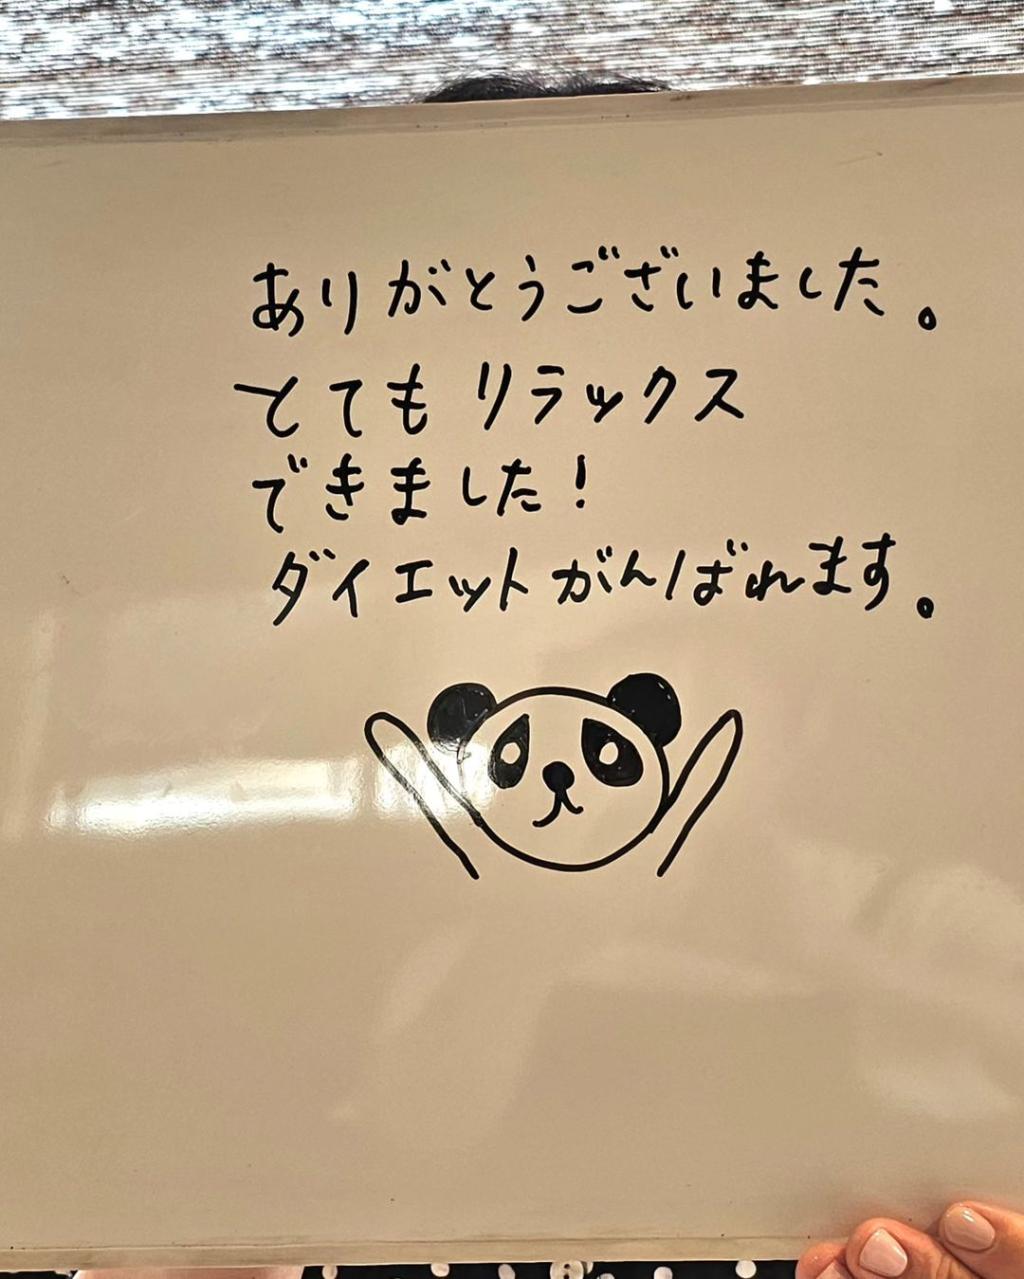 ありがとうございました。
とてもリラックス
できました!
ダイエットがんばれます。